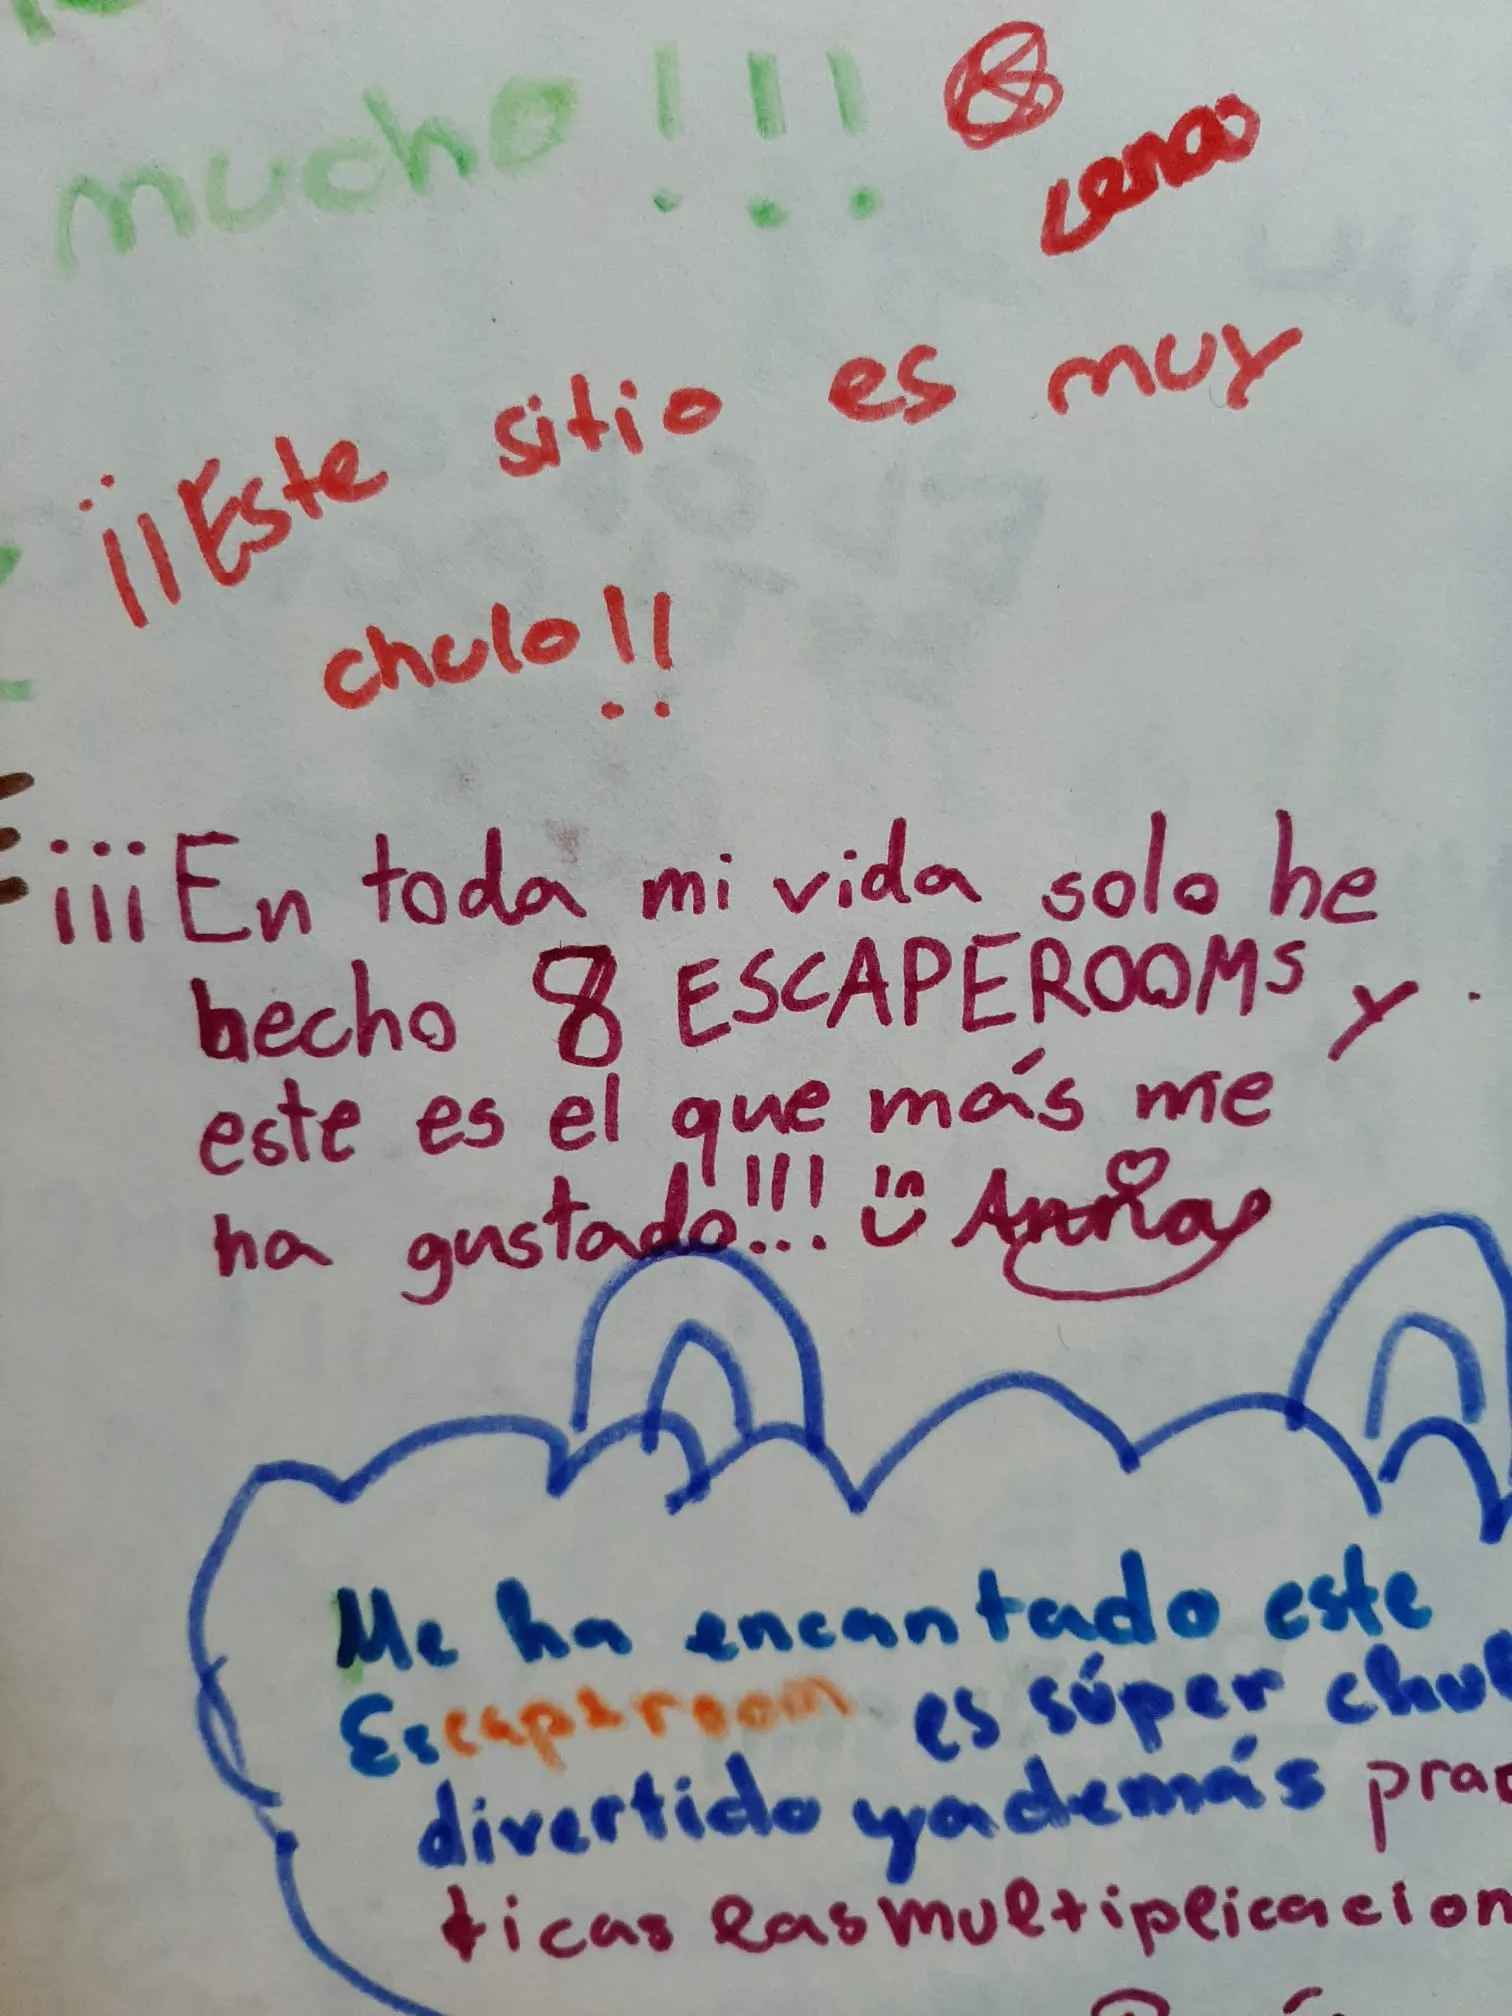 mucho!!!
¡¡Este sitio es muy
chulo!!
¡¡¡En toda mi vida solo he
hecho 8 ESCAPEROOMS y
este es el que más me
ha gustado!!!
Me ha encantado este
Escaperoom es súper chul
divertido y además prac
ticas las multiplicacion